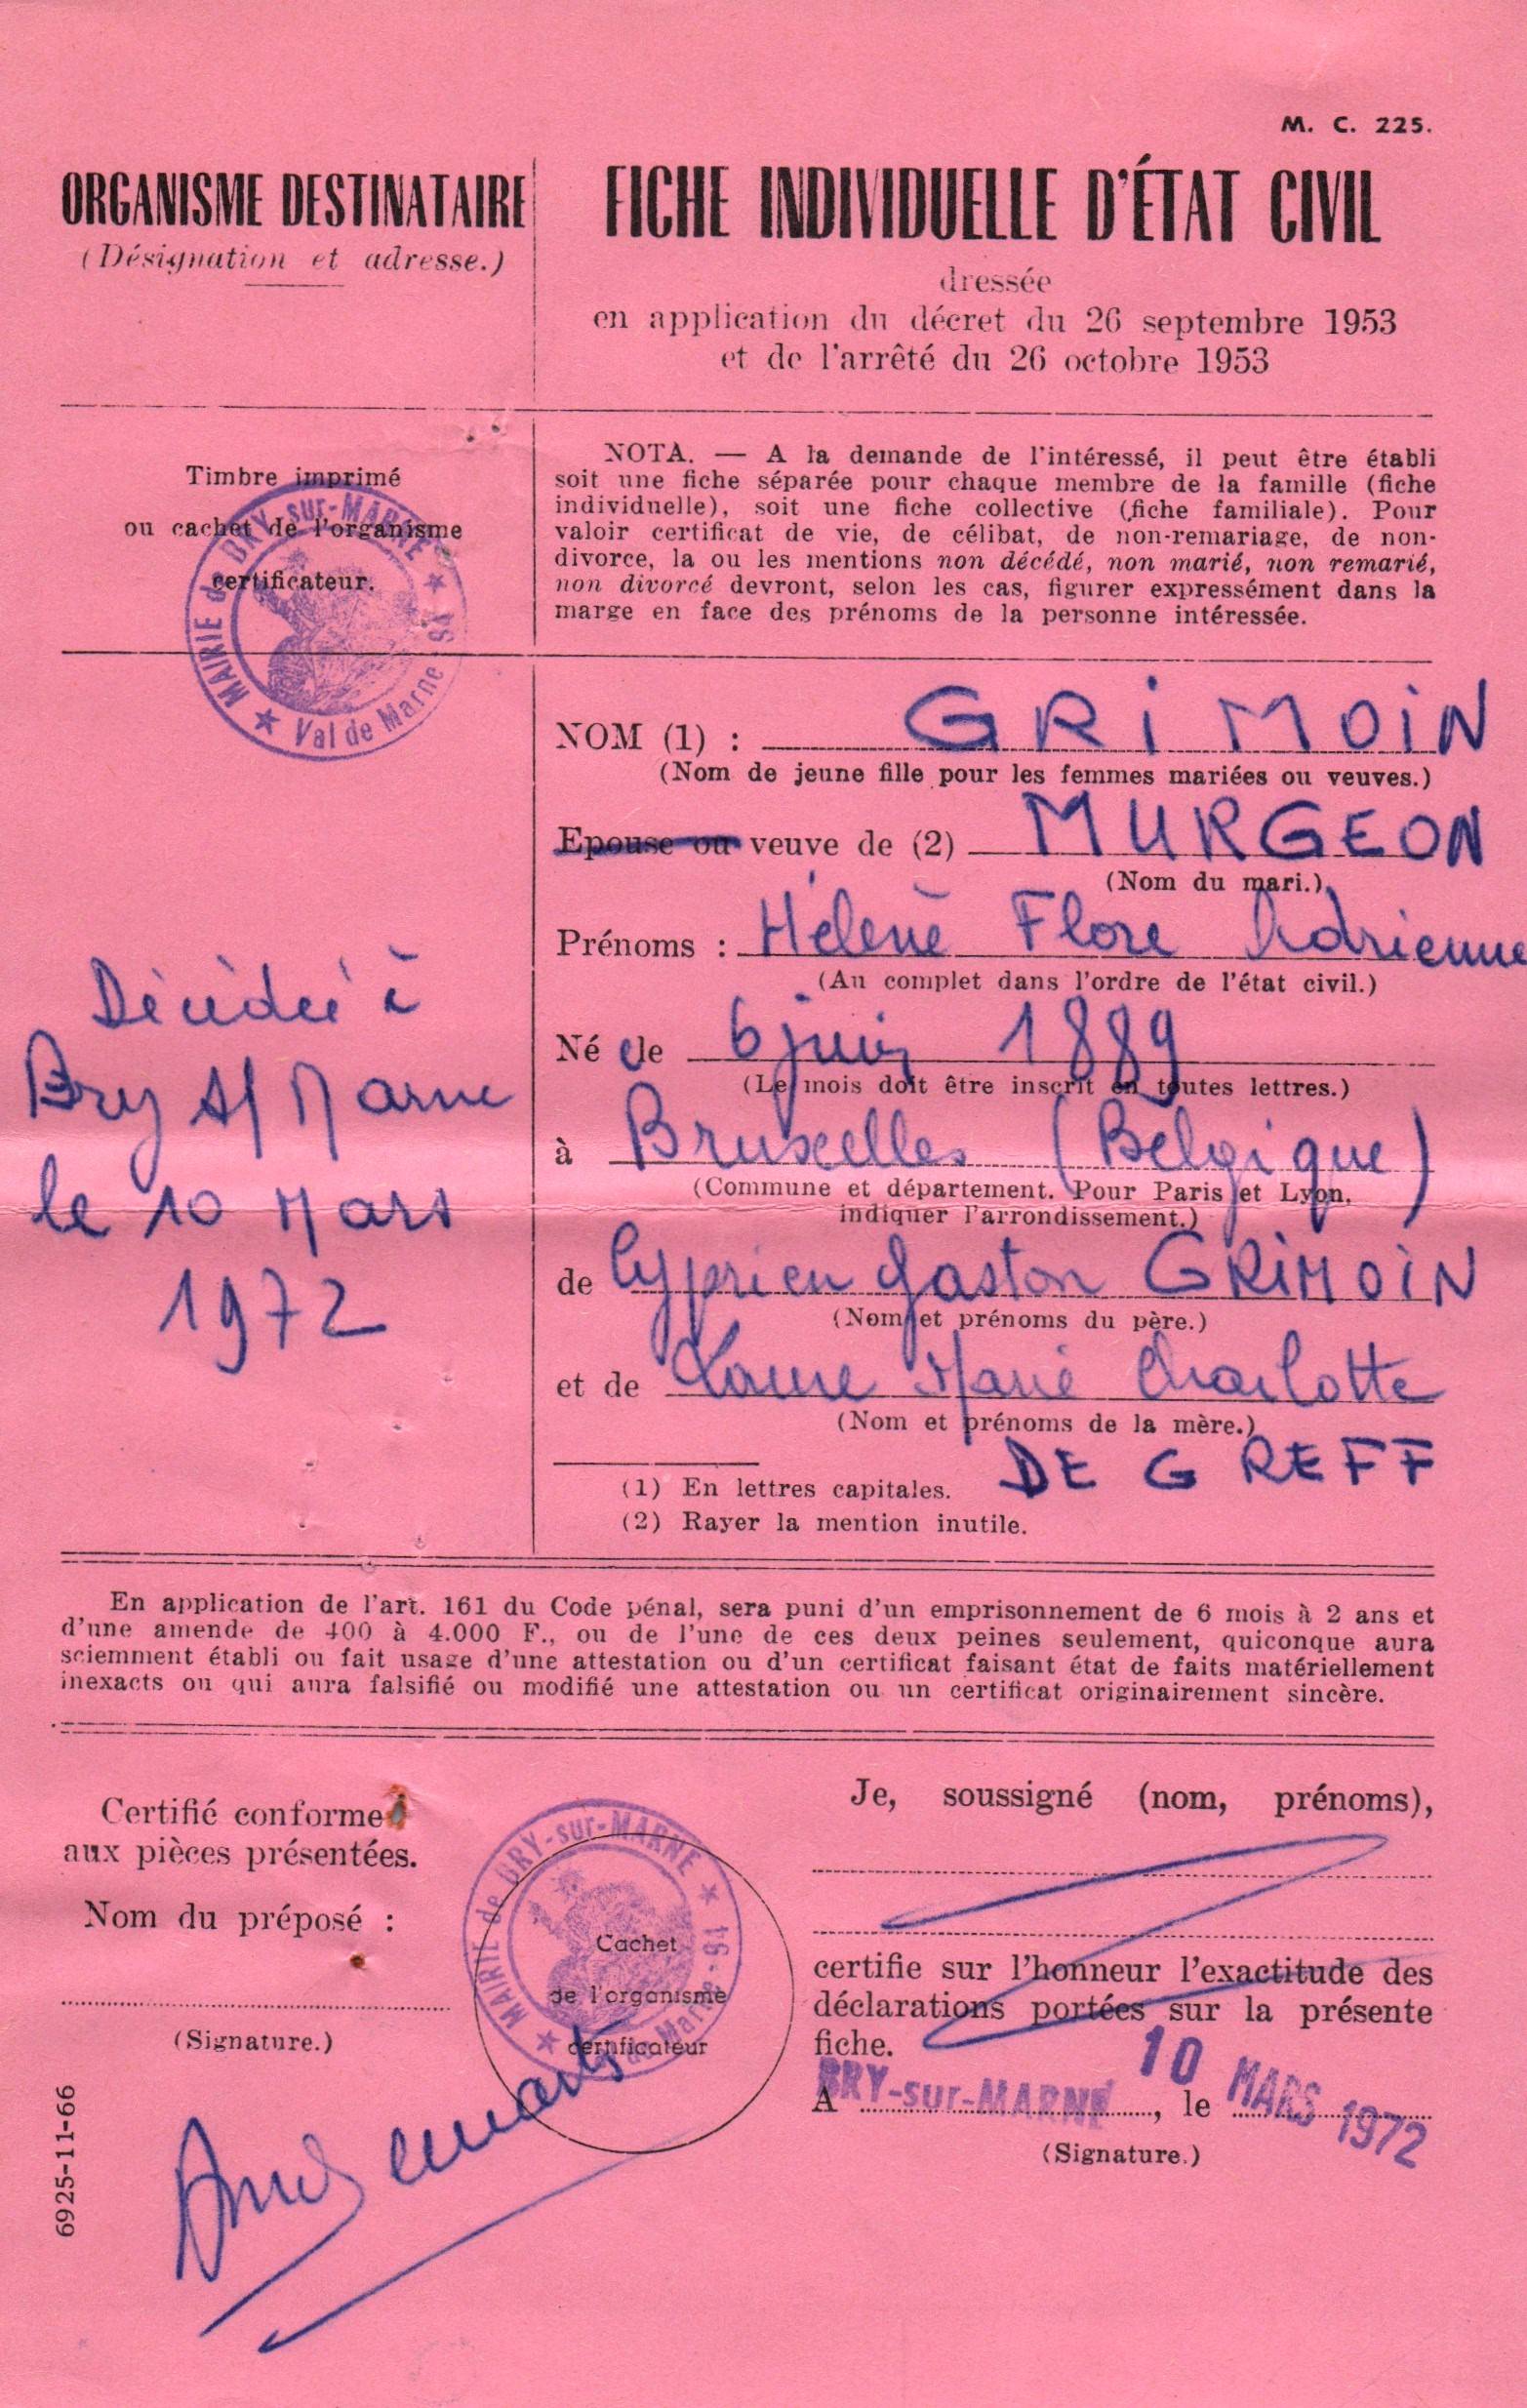 M. C. 225.
ORGANISME DESTINATAIRE
(Désignation et adresse.)
FICHE INDIVIDUELLE D'ÉTAT CIVIL
dressée
en application du décret du 26 septembre 1953
et de l'arrêté du 26 octobre 1953
Timbre imprimé
ou cachet de l'organisme
certificateur.
MAIRIE de BRY-sur-MARNE
Val de Marne
NOTA. — A la demande de l'intéressé, il peut être établi
soit une fiche séparée pour chaque membre de la famille (fiche
individuelle), soit une fiche collective (fiche familiale). Pour
valoir certificat de vie, de célibat, de non-remariage, de non-
divorce, la ou les mentions non décédé, non marié, non remarié,
non divorcé devront, selon les cas, figurer expressément dans la
marge en face des prénoms de la personne intéressée.
NOM (1) : GRIMOIN
(Nom de jeune fille pour les femmes mariées ou veuves.)
Epouse ou veuve de (2) MURGEON
(Nom du mari.)
Prénoms : Hélène Flore Adrienne
(Au complet dans l'ordre de l'état civil.)
Née le 6 juin 1889
(Le mois doit être inscrit en toutes lettres.)
à Bruxelles (Belgique)
(Commune et département. Pour Paris et Lyon,
indiquer l'arrondissement.)
de Cyprien Gaston GRIMOIN
(Nom et prénoms du père.)
et de Laure Marie Charlotte
(Nom et prénoms de la mère.)
DE GREFF
(1) En lettres capitales.
(2) Rayer la mention inutile.
Décédée à
Bry s/ Marne
le 10 Mars
1972
En application de l'art. 161 du Code pénal, sera puni d'un emprisonnement de 6 mois à 2 ans et
d'une amende de 400 à 4.000 F., ou de l'une de ces deux peines seulement, quiconque aura
sciemment établi ou fait usage d'une attestation ou d'un certificat faisant état de faits matériellement
inexacts ou qui aura falsifié ou modifié une attestation ou un certificat originairement sincère.
Certifié conforme
aux pièces présentées.
Nom du préposé :
(Signature.)
MAIRIE de BRY-sur-MARNE
Cachet
de l'organisme
certificateur
Je, soussigné (nom, prénoms),
certifie sur l'honneur l'exactitude des
déclarations portées sur la présente
fiche.
A BRY-sur-MARNE, le 10 MARS 1972
(Signature.)
6925-11-66